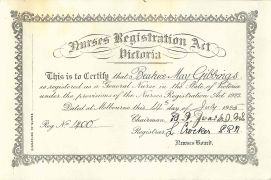 Nurses Registration Act
Victoria
This is to Certify that Beatrice May Gibbings
is registered as a General Nurse in the State of Victoria
under the provisions of the Nurses Registration Act
Dated at Melbourne this 14th day of July
Chairman
Reg. No 1400
Registrar L Crocker
Nurses Board.